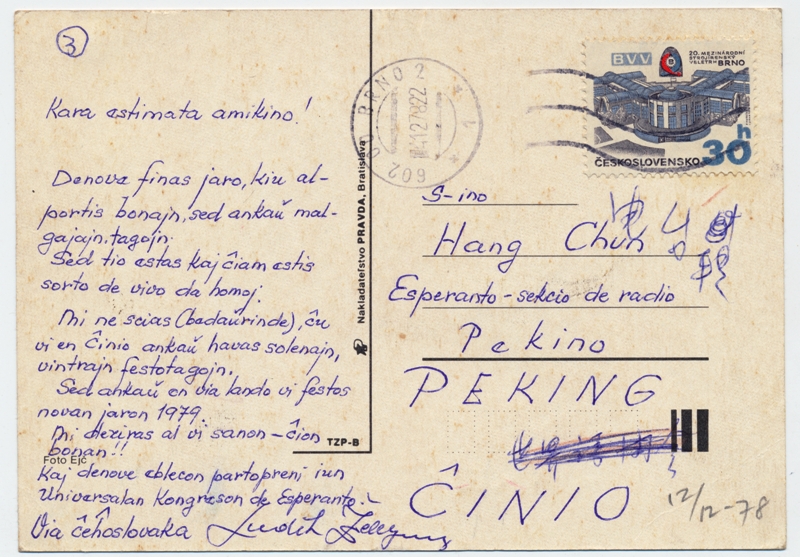 3
Kara estimata amikino!
Denove finas jaro, kiu al-
portis bonajn, sed ankaŭ mal-
gajajn tagojn.
Sed tio estas kaj ĉiam estis
sorto de vivo da homoj.
Mi ne scias (bedaŭrinde), ĉu
vi en Ĉinio ankaŭ havas solenajn,
vintrajn festotagojn.
Sed ankaŭ en via lando vi festos
novan jaron 1979
Mi deziras al vi sanon - ĉion
bonan!!
Foto Ejč
Kaj denove eblecon partopreni iun
Universalan Kongreson de Esperanto.
Via ĉeĥoslovaka Judith
Nakladateľstvo PRAVDA, Bratislava
TZP-B
602 00 BRNO 2
1
BVV
20. MEZINÁRODNÍ
STROJÍRENSKÝ
VELETRH BRNO
ČESKOSLOVENSKO 30h
S-ino
Hang Chun
Esperanto-sekcio de radio
Pekino
PEKING
ĈINIO
12/12-78